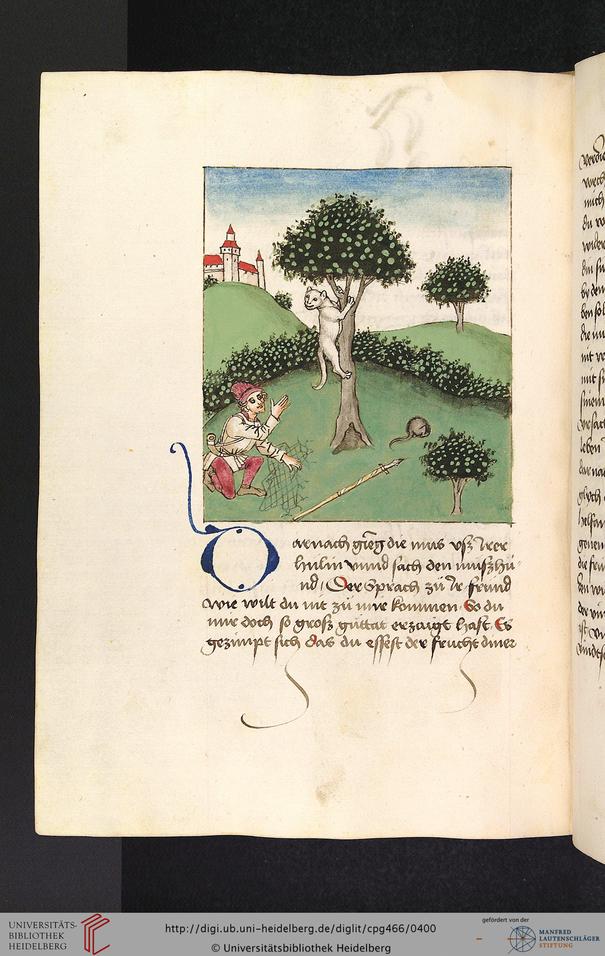 Darnach gieng die mus vsz irer
hulin vnnd sach den muszhu
nd / Der sprach zu ir frund
wie wilt du nit zu mir kommen So du
mir doch so grosz guttat erzaigt hast Es
gezimpt sich das du essest der frucht diner
UNIVERSITÄTS-
BIBLIOTHEK
HEIDELBERG
http://digi.ub.uni-heidelberg.de/diglit/cpg466/0400
© Universitätsbibliothek Heidelberg
gefördert von der
MANFRED
LAUTENSCHLÄGER
STIFTUNG